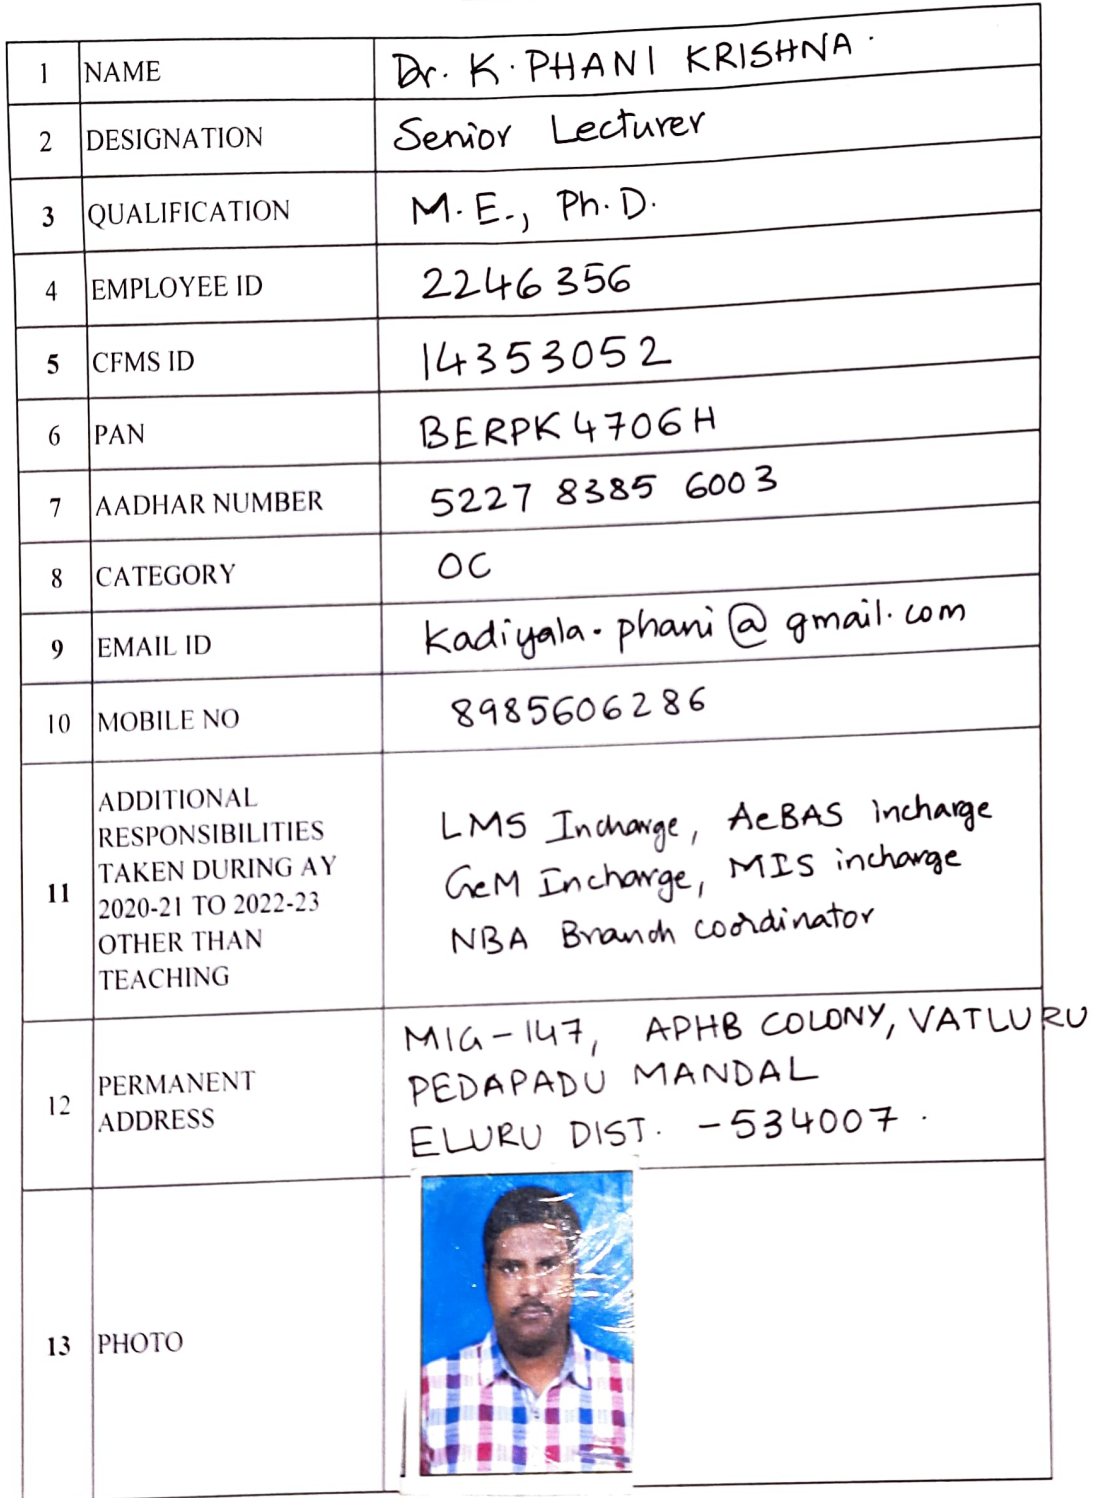 1 NAME Dr. K. PHANI KRISHNA.
2 DESIGNATION Senior Lecturer
3 QUALIFICATION M.E., Ph.D.
4 EMPLOYEE ID 2246356
5 CFMS ID 14353052
6 PAN BERPK4706H
7 AADHAR NUMBER 5227 8385 6003
8 CATEGORY OC
9 EMAIL ID kadiyala.phani@gmail.com
10 MOBILE NO 8985606286
11 ADDITIONAL
RESPONSIBILITIES
TAKEN DURING AY
2020-21 TO 2022-23
OTHER THAN
TEACHING
LMS Incharge, AeBAS incharge
GeM Incharge, MIS incharge
NBA Branch coordinator
12 PERMANENT
ADDRESS
MIG-147, APHB COLONY, VATLURU
PEDAPADU MANDAL
ELURU DIST. -534007.
13 PHOTO